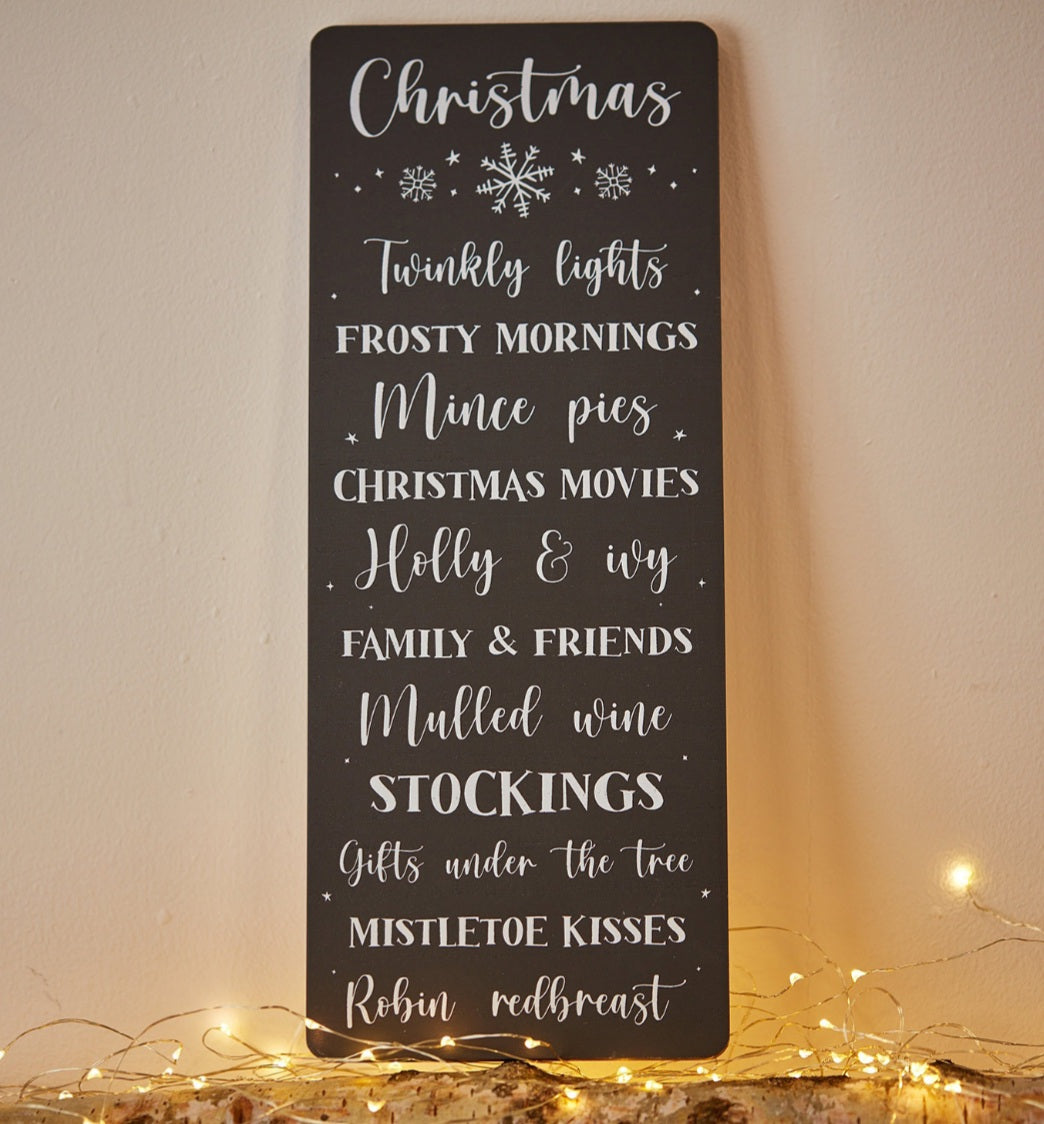 Christmas
Twinkly lights
FROSTY MORNINGS
Mince pies
CHRISTMAS MOVIES
Holly & ivy
FAMILY & FRIENDS
Mulled wine
STOCKINGS
Gifts under the tree
MISTLETOE KISSES
Robin redbreast